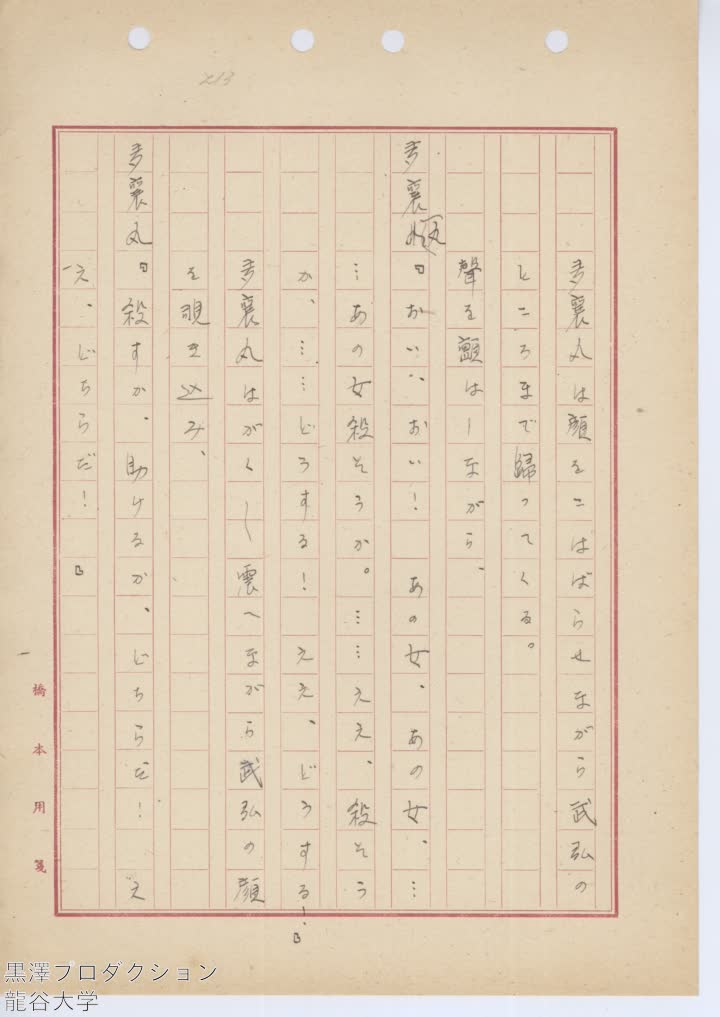 213
多襄丸は顔をこはばらせながら武弘の
ところまで歸ってくる。
聲を顫はしながら、
多襄丸「おい、おい! あの女、あの女、…
…あの女殺そうか。……ええ、殺そう
か、……どうする! ええ、どうする!」
多襄丸はがく〳〵震へながら武弘の顔
を覗き込み、
多襄丸「殺すか、助けるか、どちらだ! え
え、どちらだ!」
橋本用箋
黒澤プロダクション
龍谷大学